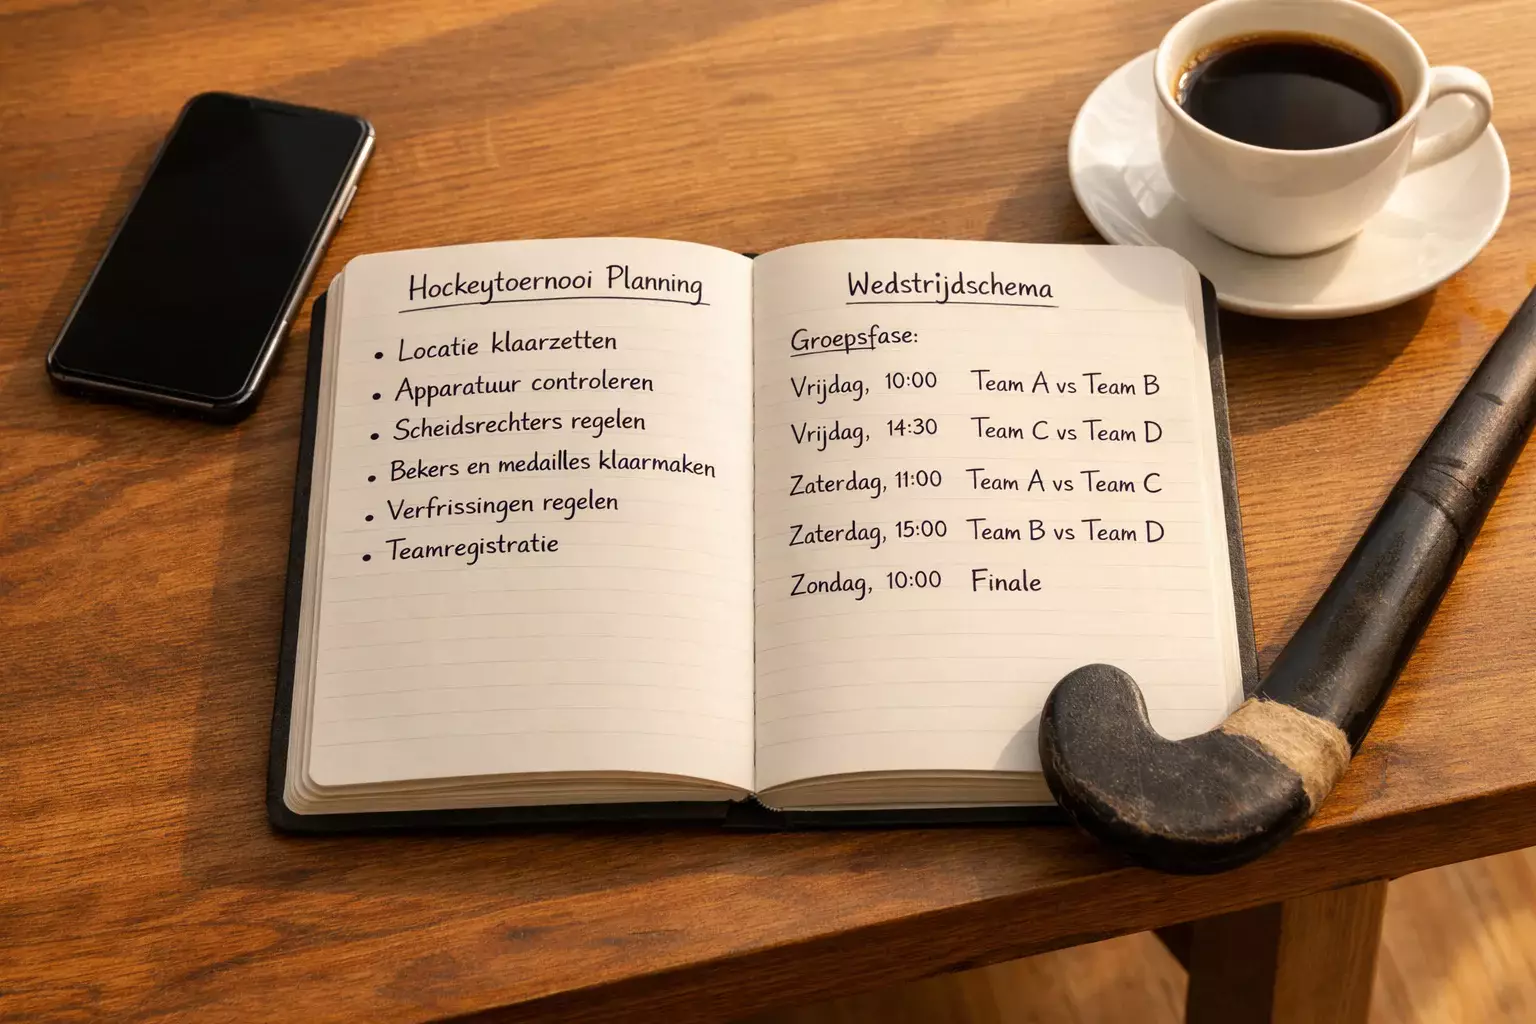 Hockeytoernooi Planning
• Locatie klaarzetten
• Apparatuur controleren
• Scheidsrechters regelen
• Bekers en medailles klaarmaken
• Verfrissingen regelen
• Teamregistratie
Wedstrijdschema
Groepsfase:
Vrijdag, 10:00 Team A vs Team B
Vrijdag, 14:30 Team C vs Team D
Zaterdag, 11:00 Team A vs Team C
Zaterdag, 15:00 Team B vs Team D
Zondag, 10:00 Finale